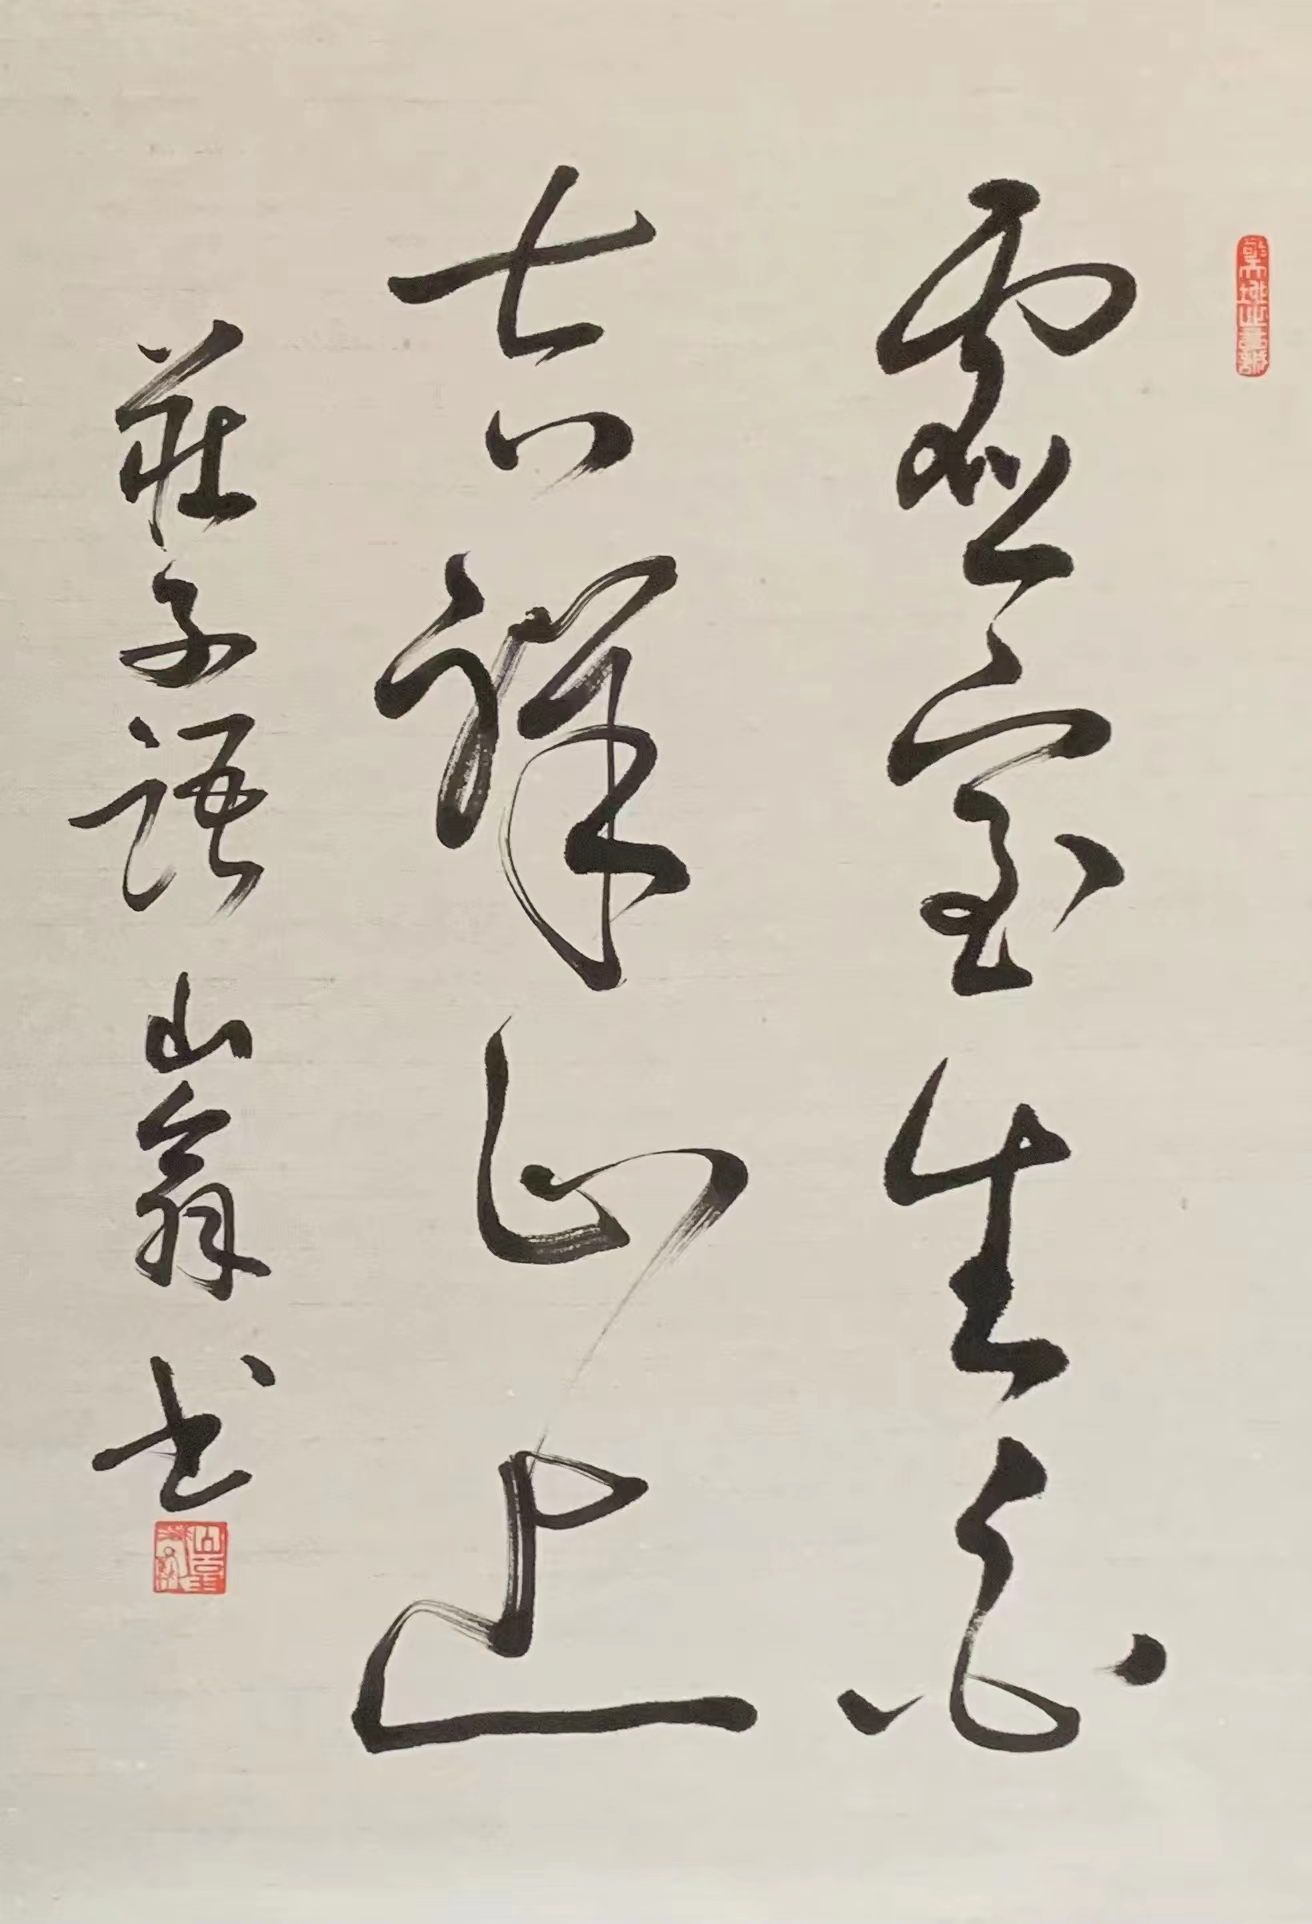 虛室生白
吉祥止止
莊子語 山翁书